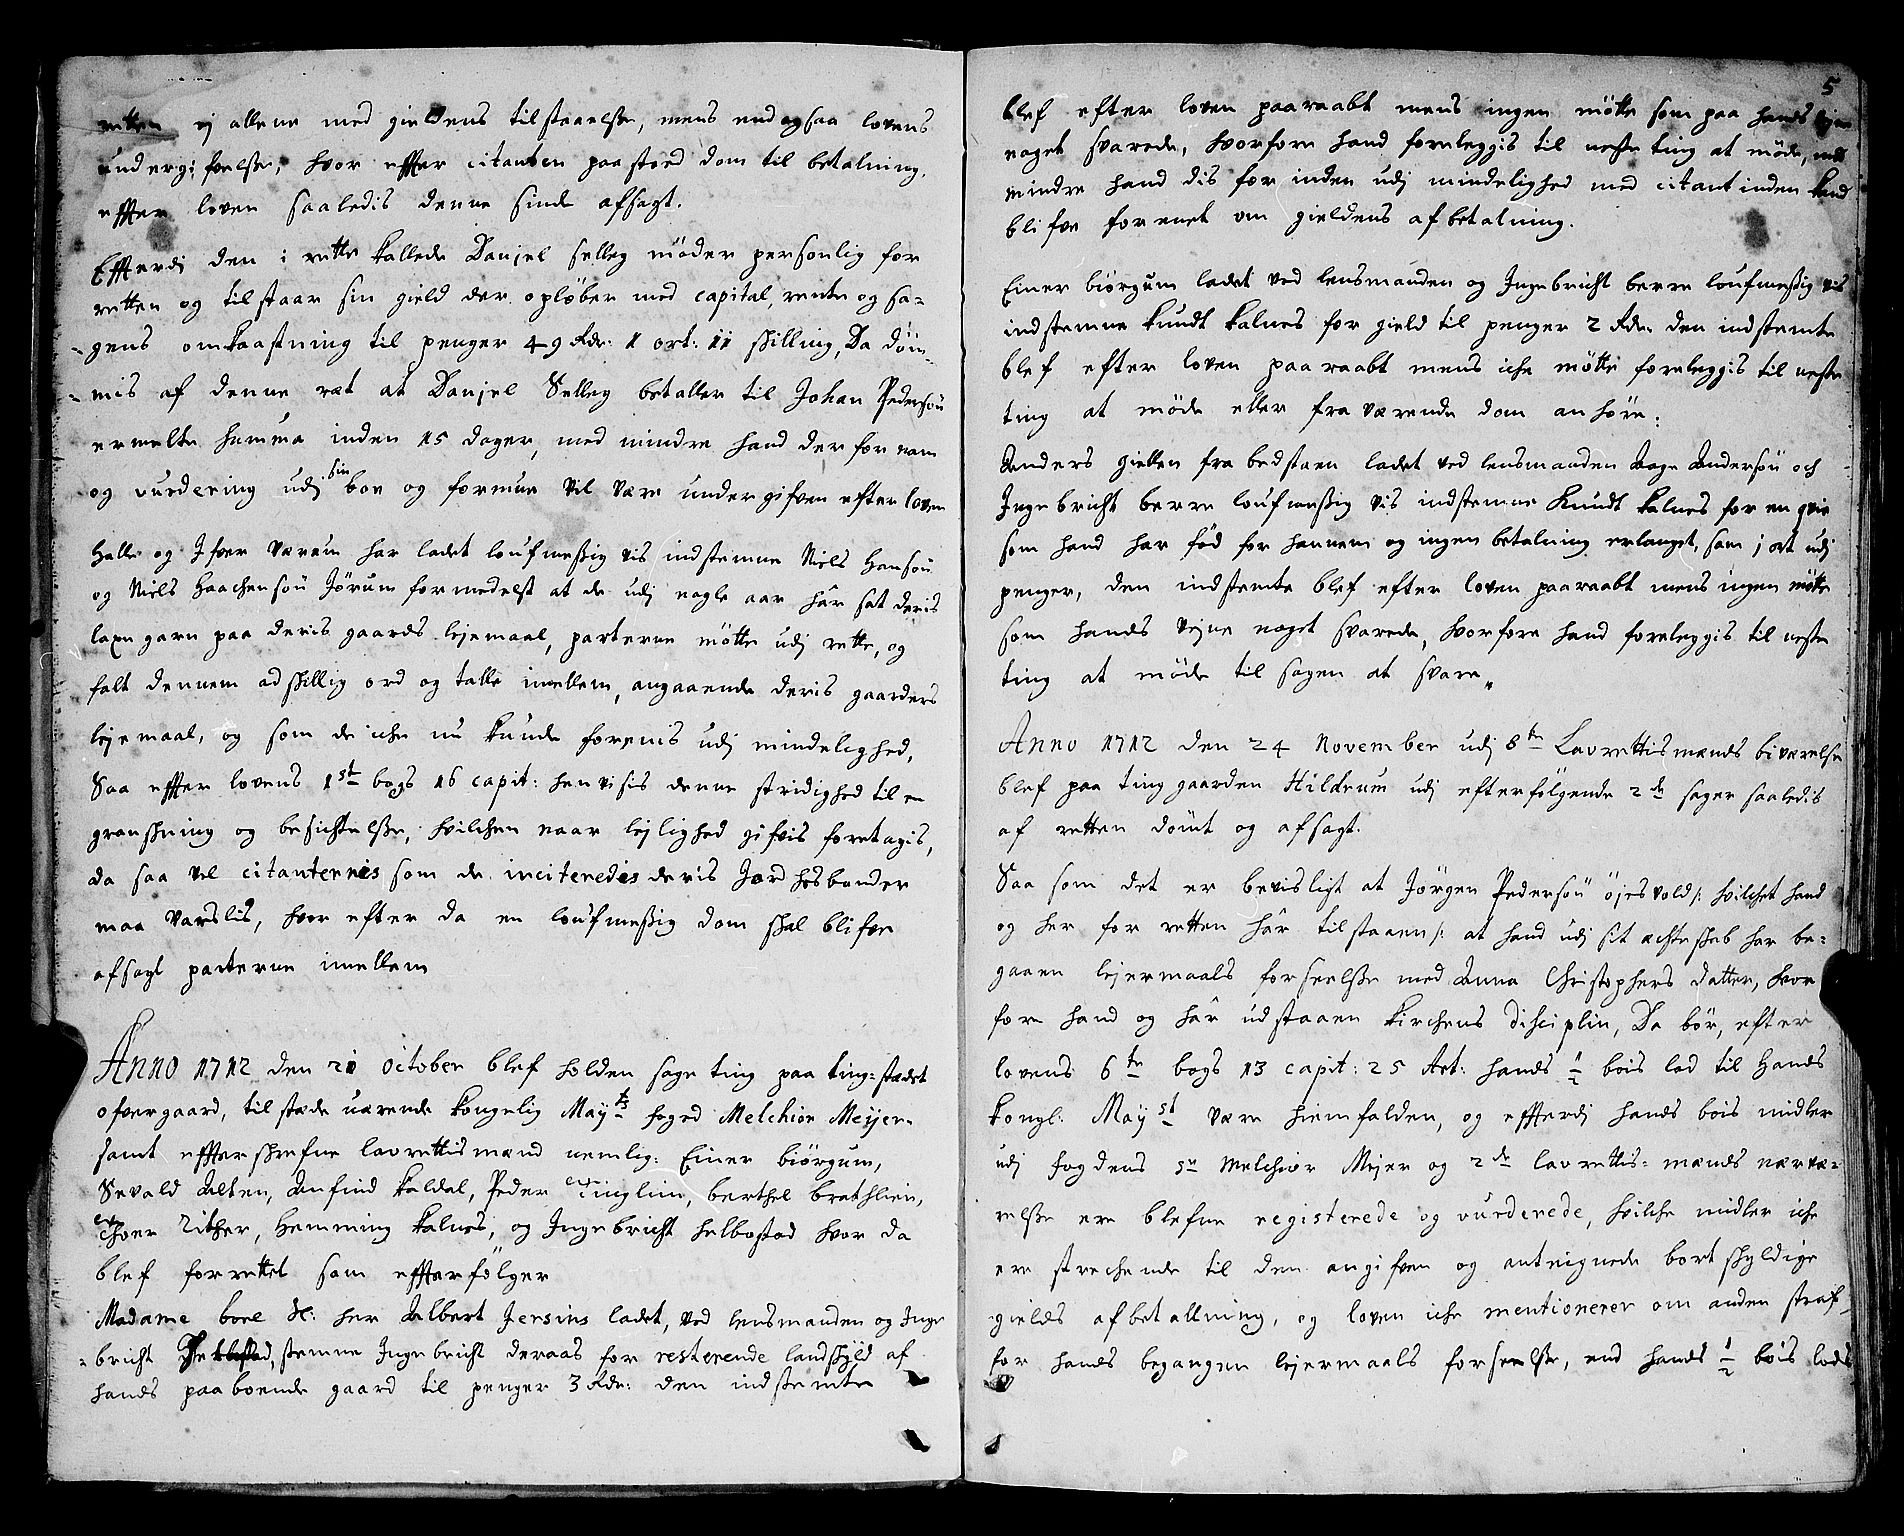 retten ej allene med gieldens tilstaaelsse, mens end og saa lovens
undergifvelsse, hvor effter citanten paastoed dom til betalning,
effter loven saaledis denne sinde afsagt.
Effterdj den i rette kallede Danjel Selleg møder personlig for
retten og tilstaar sin gield der opløber med capital, rente og sa-
gens omkaastning til penger 49 Rdr: 1 ort: 11 skilling, Da døm-
mis af denne ret at Danjel Selleg betaller til Johan Pedersøn
ermelte summa inden 15 dager, med mindre hand derfor nam
og vurdering udj sin boe og formue vil være undergifven efter loven
Halle og Ifver Værum har ladet loufmessig vis indstemne Niels Hansøn
og Niels Haachensøn Jørum formedelst at de udj nogle aar har sat deris
laxe garn paa deris gaards lejemaal, parterne møtte udj rette, og
falt dennem adskillig ord og talle imellem, angaaende deris gaarders
lejemaal, og som de iche nu kunde forenis udj mindelighed,
Saa effter lovens 1ste bogs 16 capit: henvisis denne stridighed til en
granskning og besichtelsse, hvilchen naar lejlighed gifvis foretagis,
da saa vel citanternes som de inciteredes deris Jord hosbonder
maa varslis, hvor efter da en loufmessig dom skal blifve
afsagt parterne imellem
Anno 1712 den 21 october blef holden sage ting paa ting-stædet
ofvergaard, til stæde værende kongelig Mayts foged Melchior Meyer
samt effterskrefne lavrettismænd nemlig: Einer biørgum,
Sevald Alten, Anfind kaldal, Peder Tinglim, berthel brathlien,
Thoer Zither, Hemming kalnes, og Ingebricht helbostad hvor da
blef forrettet som effterfølger
Madame boel Sl: her Albert Jersins ladet, ved lensmanden og Inge
bricht stemne Ingebricht deraas for resterende landskyld af
hands paaboende gaard til penger 3 Rdr: den indstemte
5
blef efter loven paaraabt mens ingen møtte som paa hands vejne
noget svarede, hvorfore hand foreleggis til neste ting at møde, med
mindre hand dis for inden udj mindelighed med citantinden kand
blifve forenet om gieldens afbetalning.
Einer biørgum ladet ved lensmanden og Ingebricht berre loufmessig vis
indstemne knudt kalnes for gield til penger 2 Rdr. den indstemte
blef efter loven paaraabt mens iche møtte foreleggis til neste
ting at møde eller fraværende dom anhøre.
Anders giellen fra bedstaen ladet ved lensmanden Aage Andersøn och
Ingebricht berre loufmessig vis indstemne Knudt kalnes for en qvie
som hand har fød for hannem og ingen betalning erlanget, som j ort udj
penger, den indstemte blef efter loven paaraabt mens ingen møtte
som hands vejne noget svarede, hvorfore hand foreleggis til neste
ting at møde til sagen at svare.
Anno 1712 den 24 November udj 8te Lavrettismænds biværelse
blef paa ting gaarden Hildrum udj efterfølgende 2de sager saaledis
af retten dømt og afsagt.
Saa som det er bevisligt at Jørgen Pedersøn Øjesvold /: hvilchet hand
og her for retten har tilstaaen /: at hand udj sit echteskab har be-
gaaen lejermaals forseelsse med Anna Christophers datter, hvor
fore hand og har udstaaen kirchens disciplin, Da bør, efter
lovens 6te bogs 13 capit: 25 Art: hands 1/2 bois lod til Hands
Kongl: Mayst være hiemfalden, og effterdj hands bois midler
udj fogdens Sr Melchior Mejer og 2de lavrettis-mænds nærvæ-
relsse ere blefne registerede og vurderede, hvilche midler iche
ere strechende til den angifven og anteignede bortskyldige
gields afbetallning, og loven iche mentionerer om anden straf
for hands begangen lejermaals forseelsse, end hands 1/2 bois lods